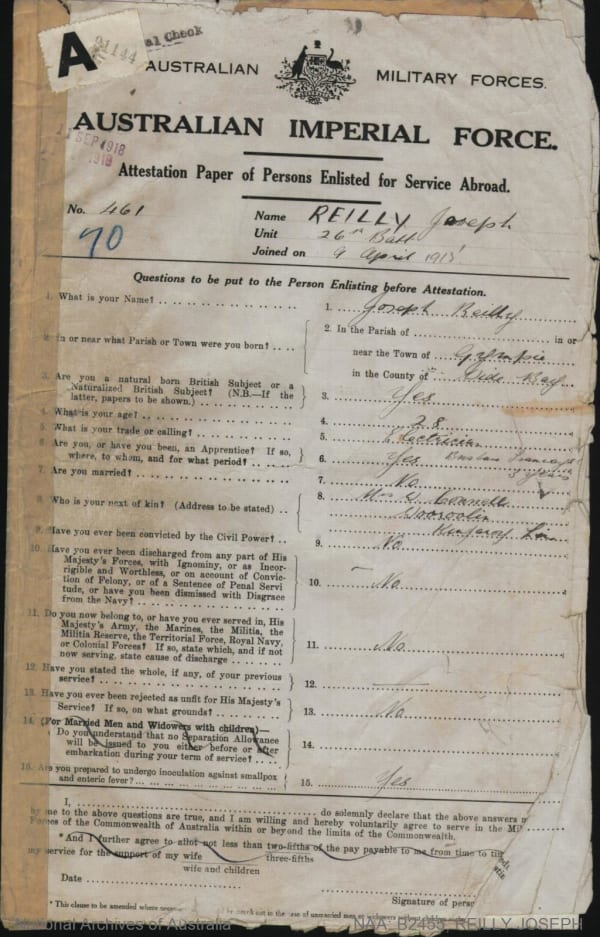 A
21144
Check
AUSTRALIAN MILITARY FORCES.
AUSTRALIAN IMPERIAL FORCE.
SEP 1918
1918
Attestation Paper of Persons Enlisted for Service Abroad.
No. 461
70
Name REILLY Joseph
Unit 26th Batt
Joined on 9 April 1915
Questions to be put to the Person Enlisting before Attestation.
1. What is your Name?
1. Joseph Reilly
2. In or near what Parish or Town were you born?
2. In the Parish of in or
near the Town of Gympie
in the County of Wide Bay
3. Are you a natural born British Subject or a
Naturalized British Subject? (N.B.—If the
latter, papers to be shown.)
3. Yes
4. What is your age?
4. 28
5. What is your trade or calling?
5. Electrician
6. Are you, or have you been, an Apprentice? If so,
where, to whom, and for what period?
6. Yes
3 years
7. Are you married?
7. No
8. Who is your next of kin? (Address to be stated)
8. Mrs Connell
Wooroolin
Kingaroy Line
9. Have you ever been convicted by the Civil Power?
9. No
10. Have you ever been discharged from any part of His
Majesty's Forces, with Ignominy, or as Incor-
rigible and Worthless, or on account of Convic-
tion of Felony, or of a Sentence of Penal Servi
tude, or have you been dismissed with Disgrace
from the Navy?
10. No
11. Do you now belong to, or have you ever served in, His
Majesty's Army, the Marines, the Militia, the
Militia Reserve, the Territorial Force, Royal Navy,
or Colonial Forces? If so, state which, and if not
now serving, state cause of discharge
11. No
12. Have you stated the whole, if any, of your previous
service?
12.
13. Have you ever been rejected as unfit for His Majesty's
Service? If so, on what grounds?
13. No
14. (For Married Men and Widowers with children)—
Do you understand that no Separation Allowance
will be issued to you either before or after
embarkation during your term of service?
14.
15. Are you prepared to undergo inoculation against smallpox
and enteric fever?
15. Yes
I, do solemnly declare that the above answers
by me to the above questions are true, and I am willing and hereby voluntarily agree to serve in the Mil
Forces of the Commonwealth of Australia within or beyond the limits of the Commonwealth.
*And I further agree to allot not less than two-fifths of the pay payable to me from time to
three-fifths
my service for the support of my wife
wife and children
Date
Signature of perso
* This clause to be amended where
struck out in the case of unmarried men or widowers
National Archives of Australia
NAA: B2455, REILLY JOSEPH